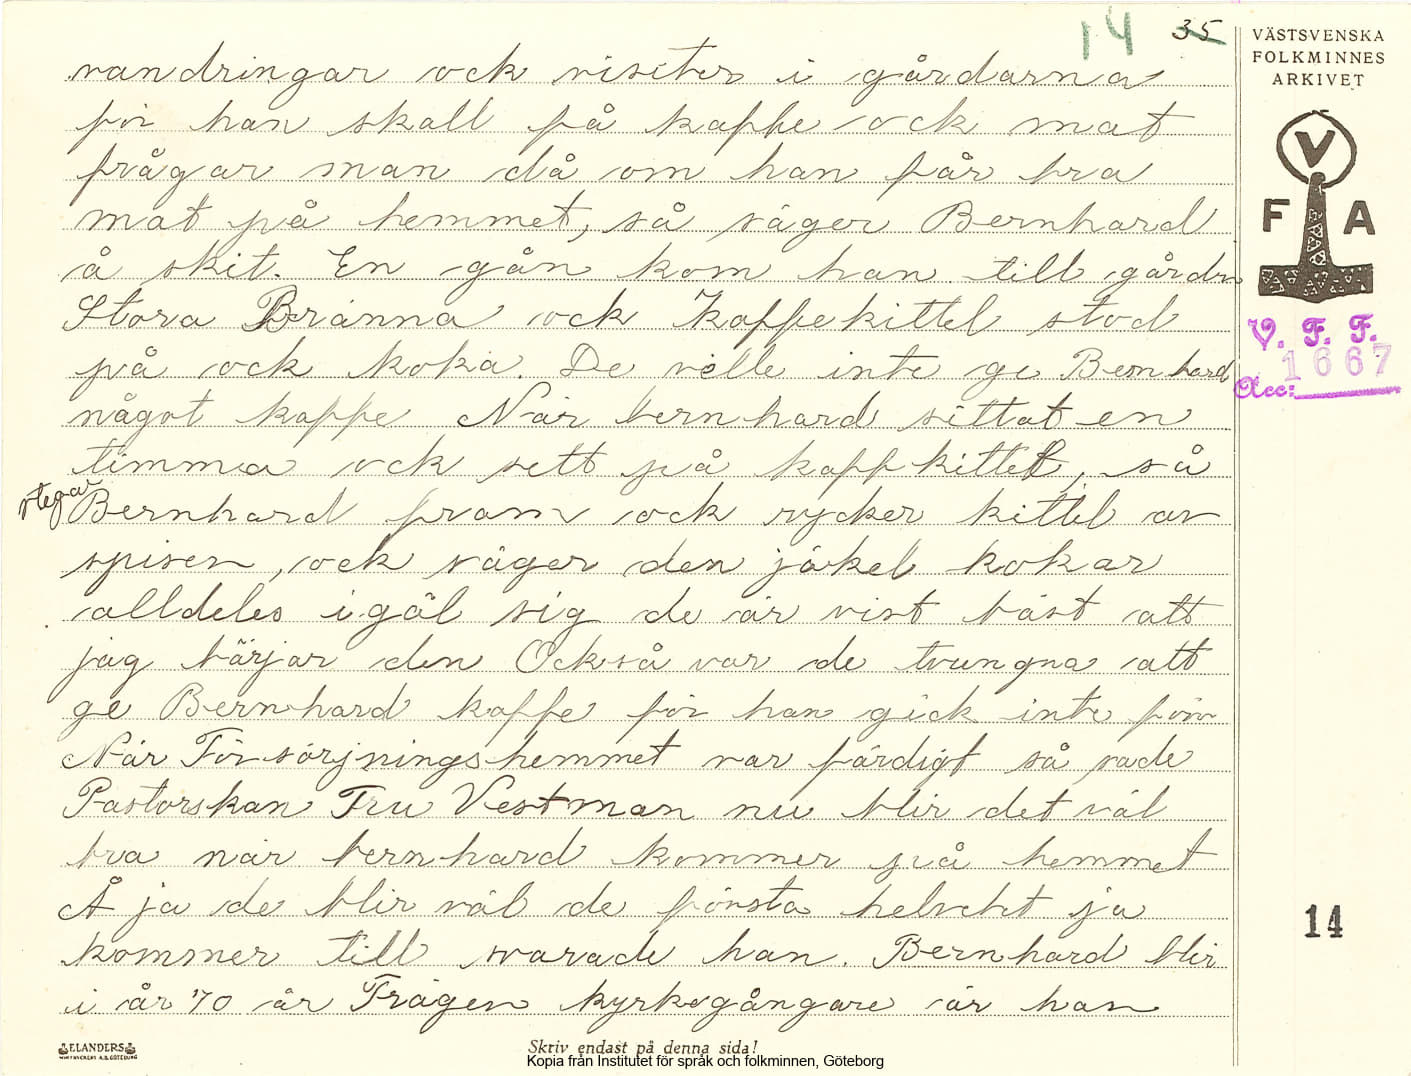 14 35
VÄSTSVENSKA
FOLKMINNES
ARKIVET
vandringar ock visiter i gårdarna
för han skall få kaffe ock mat
frågar man då om han får bra
mat på hemmet, så säger Bernhard
å skit. En gån kom han till gårdn
Stora Bränna ock Kaffekittel stod
på ock koka. De ville inte ge Bernhard
något kaffe När bernhard sittat en
timma ock sett på kaffkittel, så
stegar Bernhard fram ock rycker kittel av
spisen, ock säger den jäkel kokar
alldeles igäl sig de är vist bäst att
jag bärjar den Också var de tvungna att
ge Bernhard kaffe för han gick inte förr
När Försörjningshemmet var färdigt så sade
Pastorskan Fru Vestman nu blir det väl
bra när bernhard kommer på hemmet
Å ja de blir väl de första helvetet ja
kommer till svarade han. Bernhard blir
i år 70 år Trägen kyrkogångare är han
V F A
V. F. F.
Acc: 1667
14
ELANDERS
Skriv endast på denna sida!
Kopia från Institutet för språk och folkminnen, Göteborg